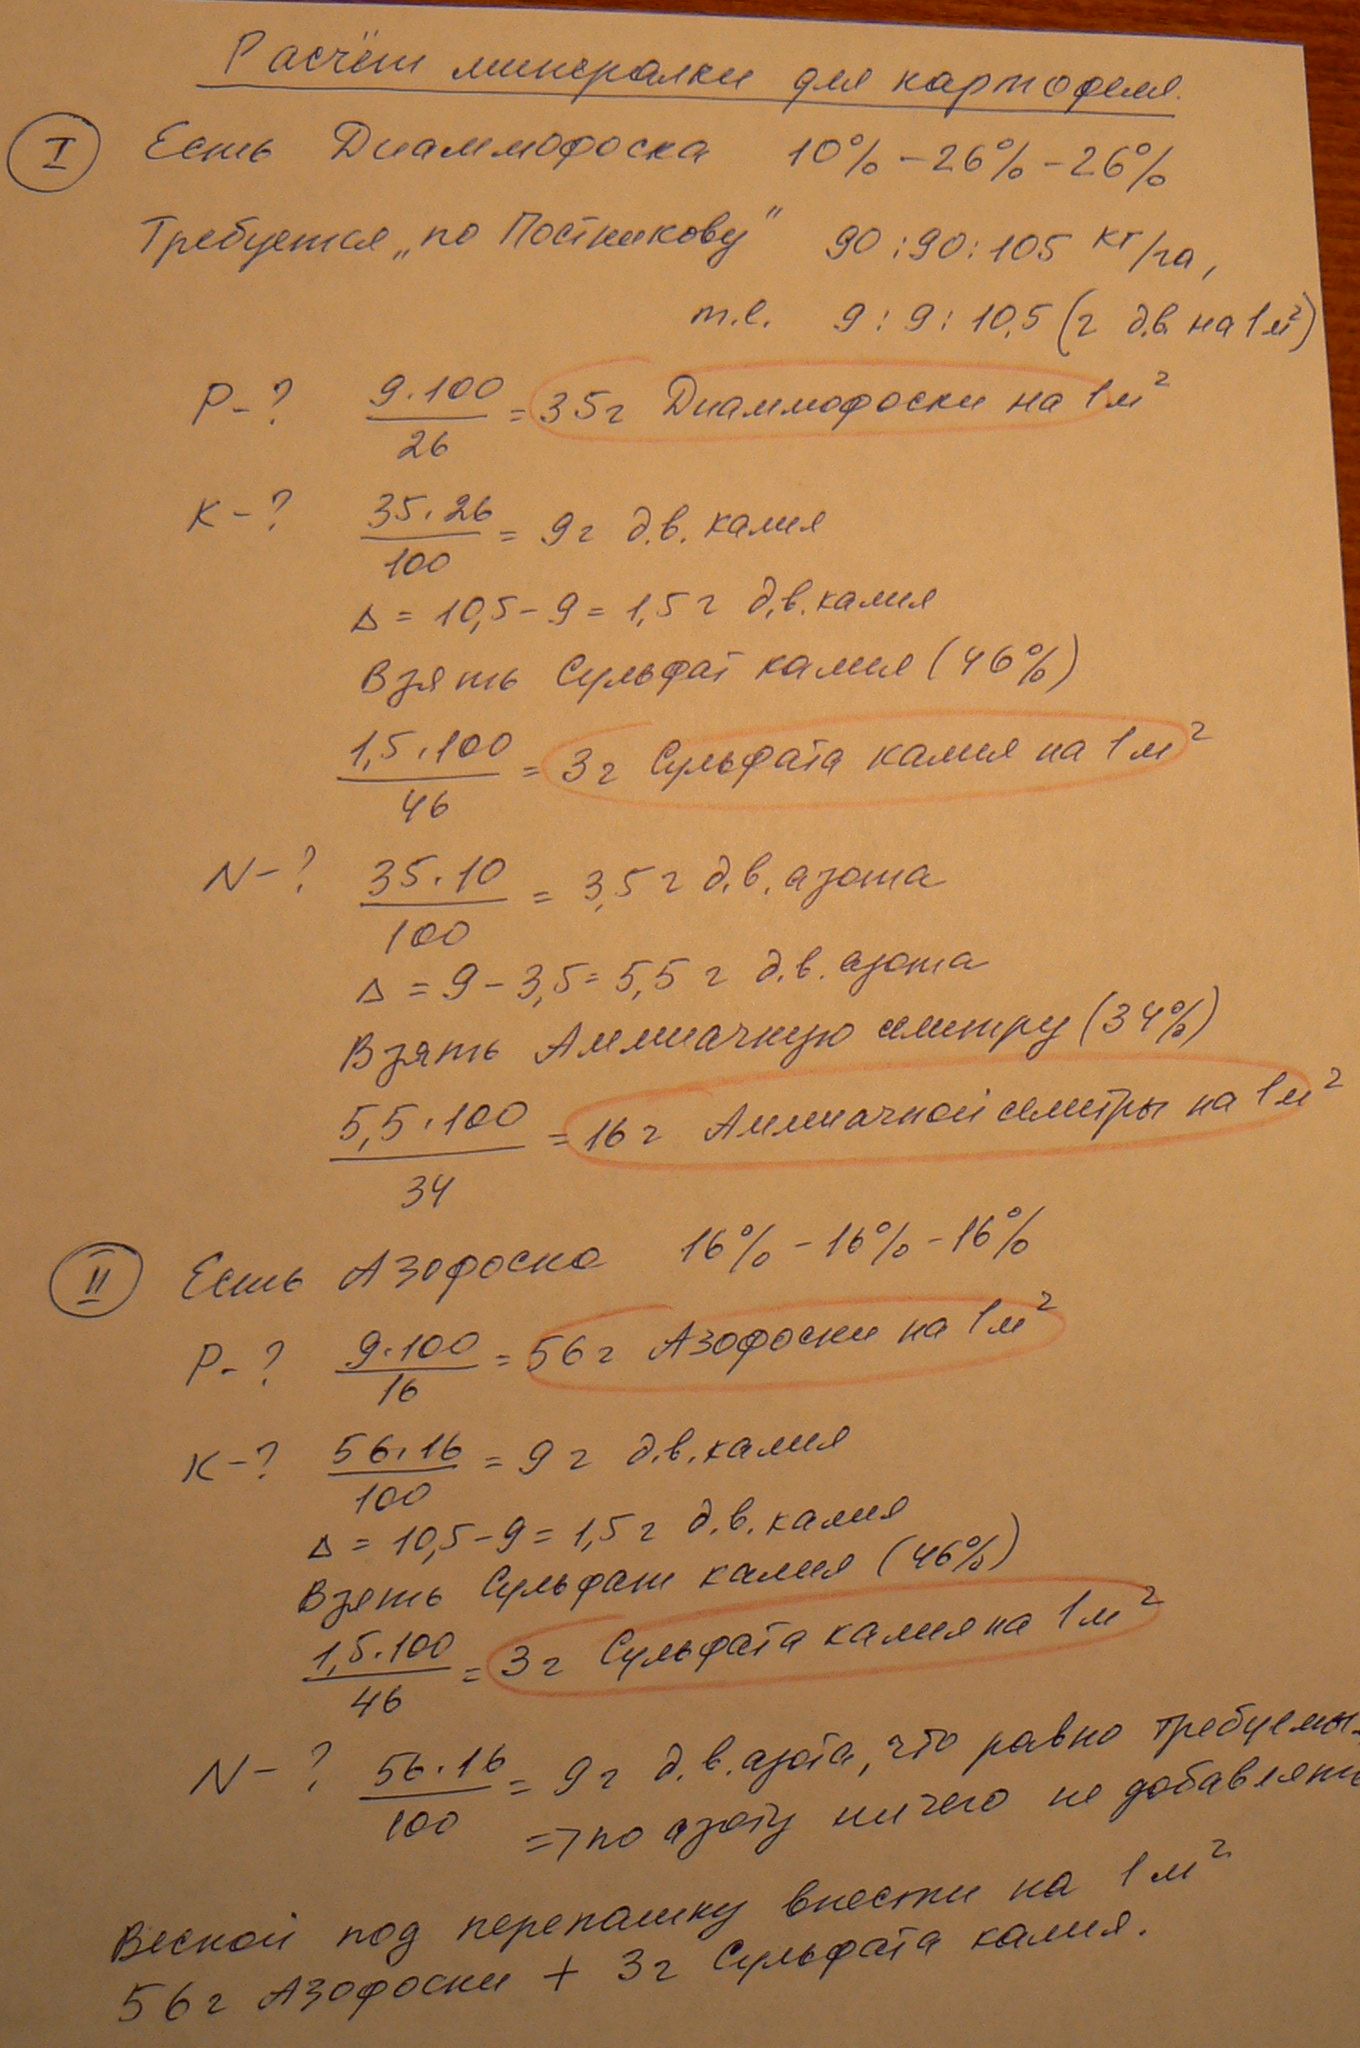 Расчёт минералки для картофеля.
I Есть Диаммофоска 10% - 26% - 26%
Требуется „по Постникову" 90 : 90 : 105 кг/га,
т.е. 9 : 9 : 10,5 (г д.в. на 1м²)
P - ? 9·100/26 = 35г Диаммофоски на 1м²
K - ? 35·26/100 = 9г д.в. калия
Δ = 10,5 - 9 = 1,5г д.в. калия
Взять Сульфат калия (46%)
1,5·100/46 = 3г Сульфата калия на 1м²
N - ? 35·10/100 = 3,5г д.в. азота
Δ = 9 - 3,5 = 5,5г д.в. азота
Взять Аммиачную селитру (34%)
5,5·100/34 = 16г Аммиачной селитры на 1м²
II Есть Азофоска 16% - 16% - 16%
P - ? 9·100/16 = 56г Азофоски на 1м²
K - ? 56·16/100 = 9г д.в. калия
Δ = 10,5 - 9 = 1,5г д.в. калия
Взять Сульфат калия (46%)
1,5·100/46 = 3г Сульфата калия на 1м²
N - ? 56·16/100 = 9г д.в. азота, что равно требуемы-
=> по азоту ничего не добавлять
Весной под перепашку внести на 1м²
56г Азофоски + 3г Сульфата калия.